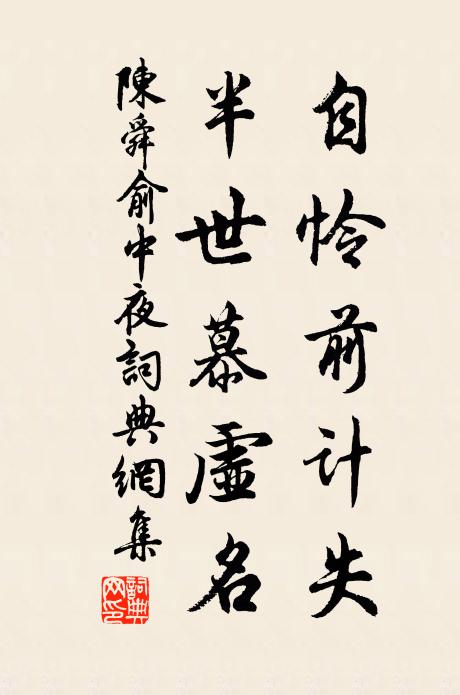 自怜前计失
半世慕虛名
陳舜俞中夜詞典網集
詞典网印